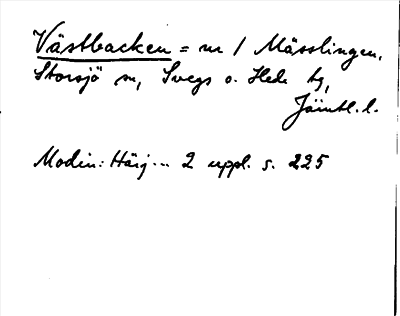 Västbacken = nr 1 Mässlingen,
Storsjö sn, Svegs o. Hede tg,
Jämtl. l.
Modin: Härj... 2 uppl. s. 225